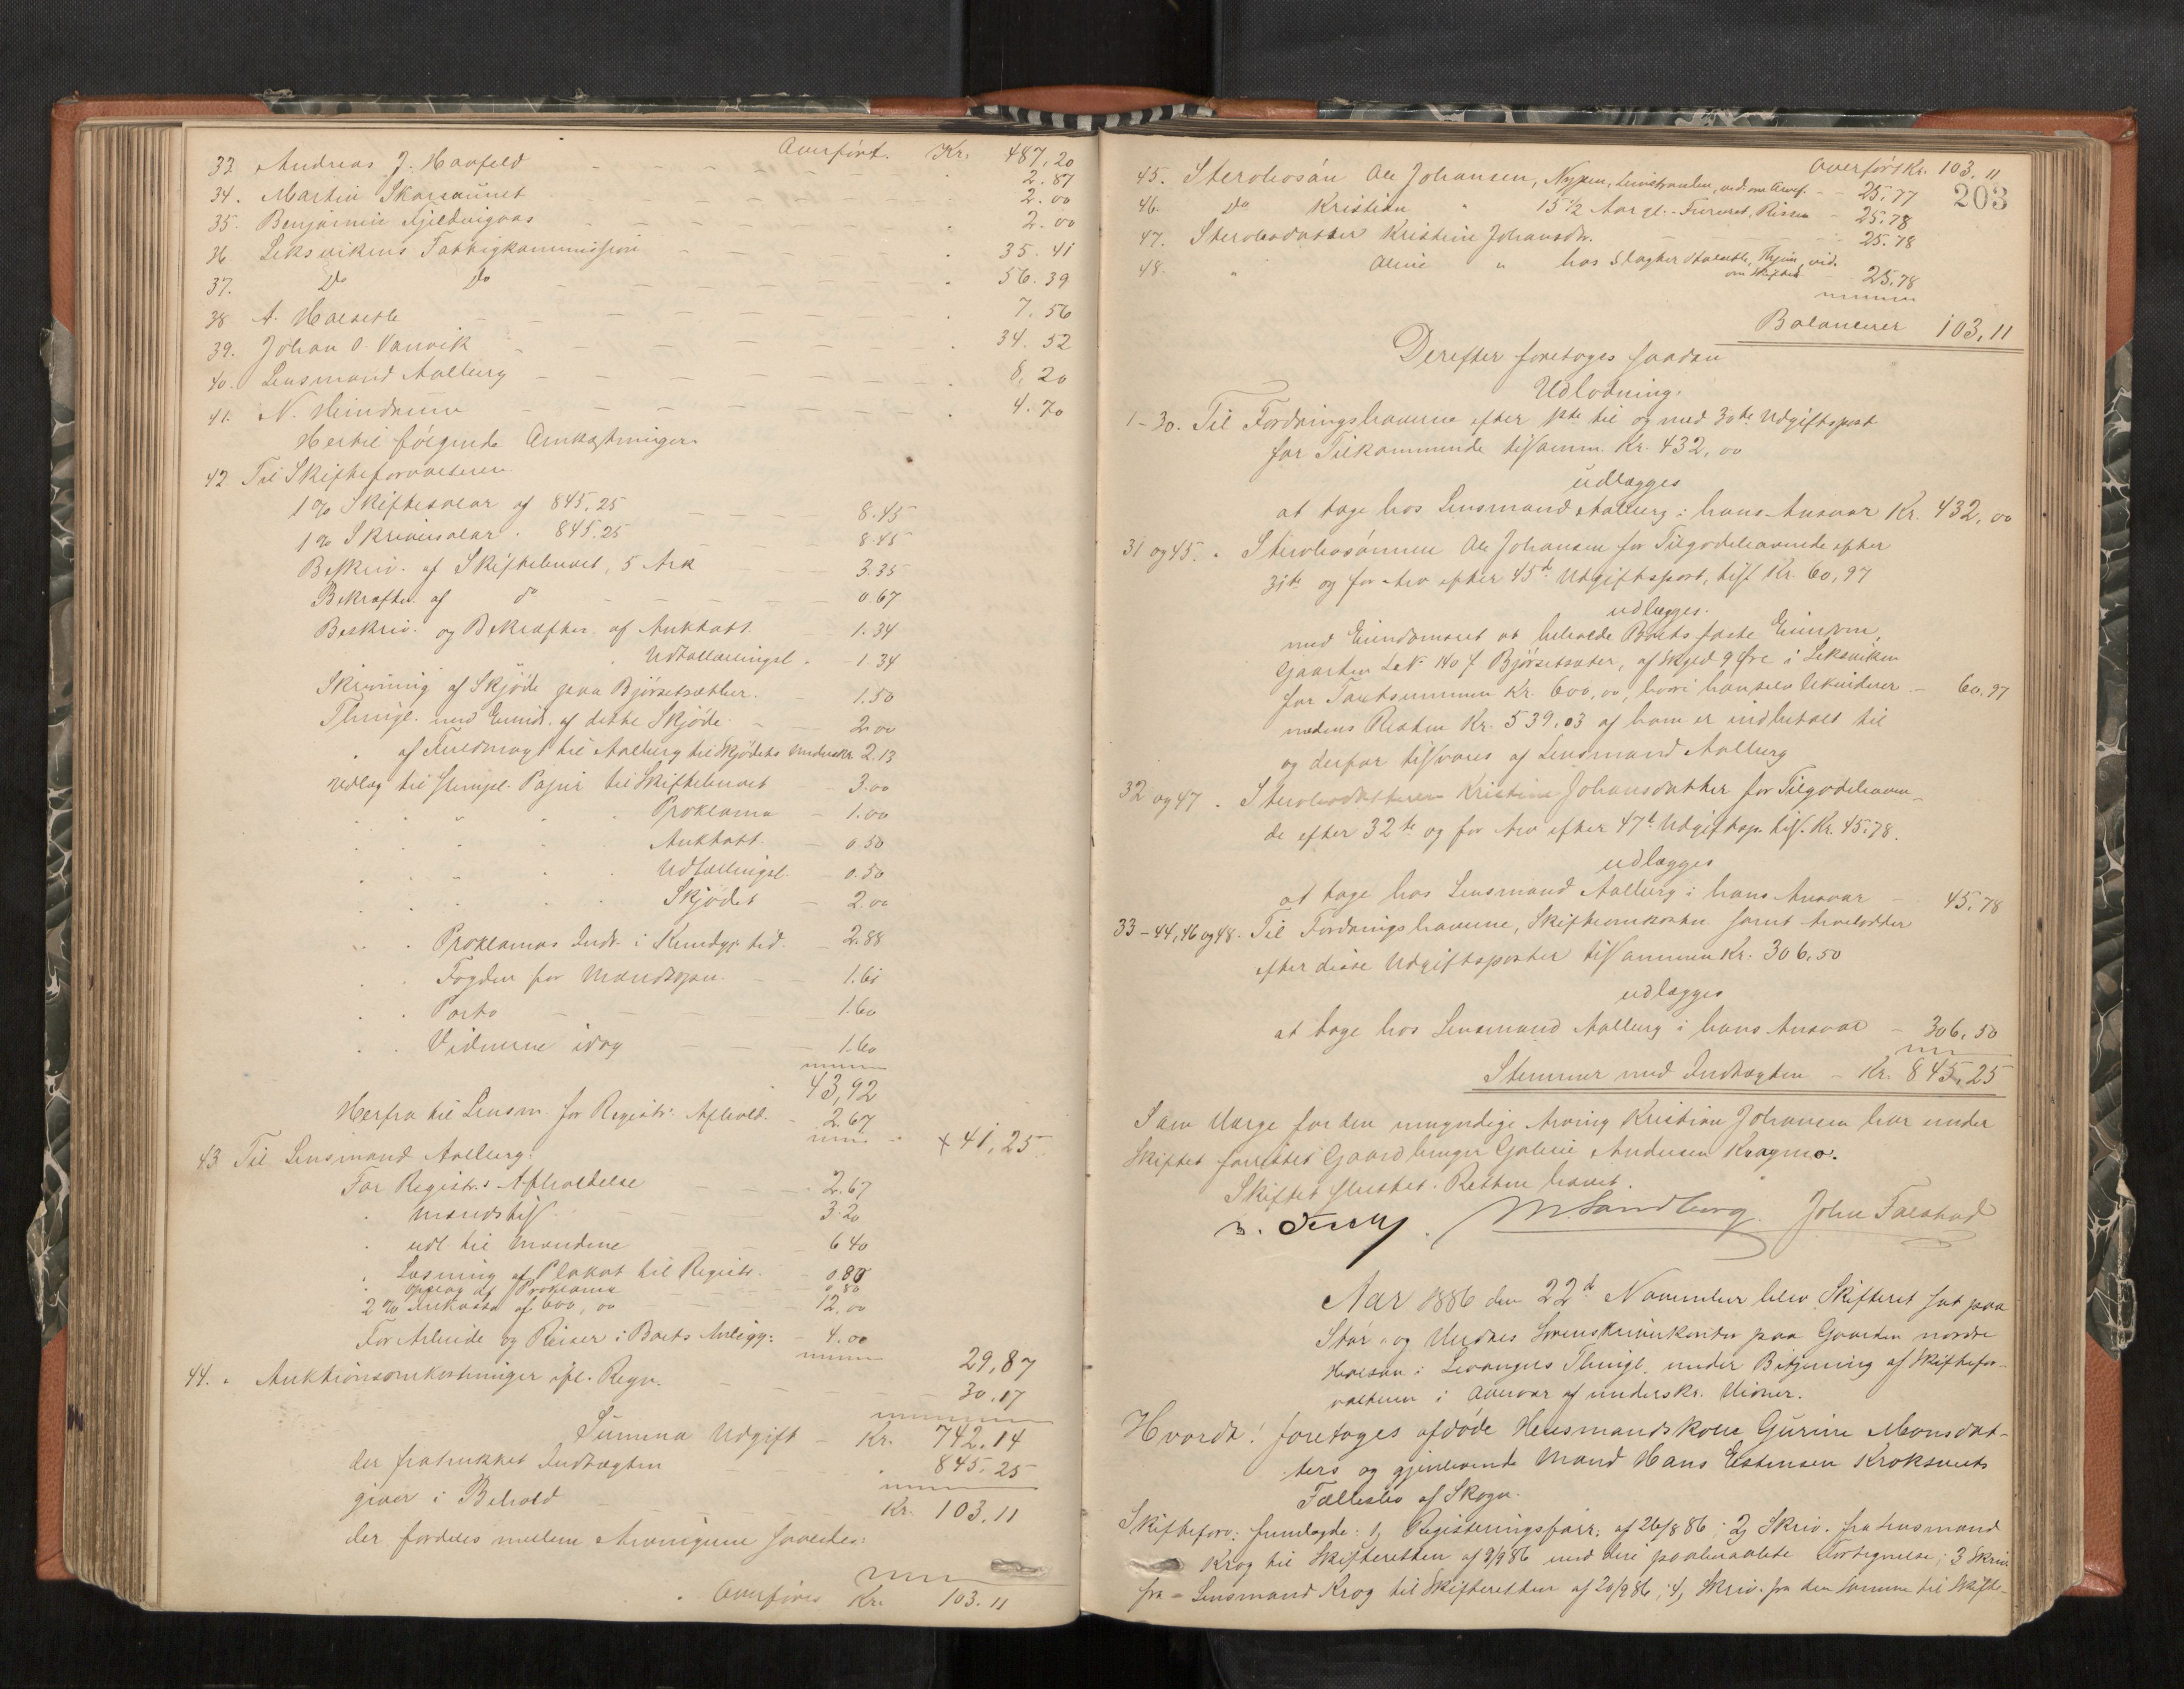 Overført. Kr. 487,20
33 Andreas J. Havfeld 2.87
34. Martin Skarsaunet 2.00
35. Benjamin Fjeldseigaas 2.00
36 Leksvikens Fattigkommission 35.41
37. Do Do 56.39
38 A. Halseth 7.56
39. Johan O. Vanvik 34.52
40. Lensmand Aalberg 8,20
41. N. Hindrum 4.70
Hertil følgende Omkostninger
42 Til Skifteforvalteren
1 % Skiftesalar af 845,25 8.45
1 % Skriversalar " 845.25 8.45
Beskriv. af Skiftebrevet, 5 Ark 3.35
Bekræftn. af do 0.67
Beskriv. og Bekræftn. af Auktatt. 1.34
Udtællingsl. 1.34
Skrivning af Skjøde paa Bjørsetsæther. 1.50
Thingl. med Eiend. af dette Skjøde 2.00
" af Fuldmagt til Aalberg til Skjødets Underskr 2.13
Udlæg til stempl. Papir til Skiftebrevet 3.00
Proklama 1.00
Auktatt. 0.50
Udtællingsl. 0.50
Skjødet 2.00
Proklamas Indr. i Kundgj. tid. 2.88
Fogden for Mandsopn. 1.60
Porto 1.60
Vidnerne idag 1.60
43,92
Herfra til Lensm. for Registr. Afhold. 2.67
× 41,25
43 Til Lensmand Aalberg:
For Registr.s Afholdelse 2.67
" Mandstil 3.20
" udl. til Mændene 6 40
" Læsning af Plakat til Registr. 0.80
" Opslag af Proklama 0.80
2 % Inkasso af 600,00 12.00
For Arbeide og Reiser i Boets Anligg: 4.00
29,87
44. " Auktionsomkostninger ifl. Regn. 30.17
Summa Udgift Kr. 742.14
der fratrukket Indtægten 845.25
giver i Behold Kr. 103.11
der fordeles mellem Arvingerne saaledes:
Overføres Kr. 103.11
203
Overført Kr. 103,11
45. Stervbosøn Ole Johansen, Nypan, Leinstranden, vid. om Arvef. 25.77
46. Do Kristian " 15 1/2 Aar gl. Rissen 25.78
47. Stervbodatter Kristine Johansdtr. 25.78
48. " Oline " hos Slagter Halseth, Thjem, vid. om Skiftet 25.78
Balancerer 103,11
Derefter foretoges saadan
Udlodning:
1-30. Til Fordringshaverne efter 1ste til og med 30te Udgiftspost
for Tilkommende tilsamm. Kr. 432,00
udlægges
at tage hos Lensmand Aalberg i hans Ansvar Kr. 432,00
31 og 45. " Stervbosønnen Ole Johansen for Tilgodehavende efter
31te og for Arv efter 45de Udgiftspost, tils. Kr. 60,97
udlægges.
med Eiendomsret at beholde Boets faste Eiendom,
Gaarden L.No 140 f Bjørsetsæter, af Skyld 9 Øre i Leksviken
for Taxtsummen Kr. 600,00, hvori han selv likviderer 60.97
medens Resten Kr. 539.03 af ham er indbetalt til
og derfor tilsvares af Lensmand Aalberg
32 og 47. Stervbodatteren Kristine Johansdatter for Tilgodehaven-
de efter 32te og for Arv efter 47de Udgiftsp. tils. Kr. 45.78.
udlægges
at tage hos Lensmand Aalberg i hans Ansvar 45.78
33-44, 46 og 48. Til Fordringshaverne, Skifteomkoster samt Arvelodder
efter disse Udgiftsposter tilsammen Kr. 306,50
udlægges
at tage hos Lensmand Aalberg i hans Ansvar 306,50
Stemmer med Indtægten Kr. 845,25
Som Værge for den umyndige Arving Kristian Johansen har under
Skiftet Gaardbruger Andersen Kvagmo.
Skiftet sluttet. Retten hævet.
M. Sandberg. John Falstad
Aar 1886 den 22de November blev Skifteret sat paa
Stør- og Verdals Sorenskriverkontor paa Gaarden nordre
Halsan i Levangers Thingl. under Betjening af Skiftefor-
valteren i Overvær af underskr. Vidner.
Hvorda: foretoges afdøde Husmandskone Gurine Monsdat-
ters og gjenlevende Mand Hans Estensen Kroksveets
Fællesbo af Skogn.
Skifteforv: fremlagde: 1, Registreringsforr. af 26/8 86; 2, Skriv. fra Lensmand
Krog til Skifteretten af 9/9 86 med deri paaberaabte Fortegnelse; 3 Skriv
fra Lensmand Krog til Skifteretten af 20/9 86; 4, Skriv. fra den samme til Skifte-